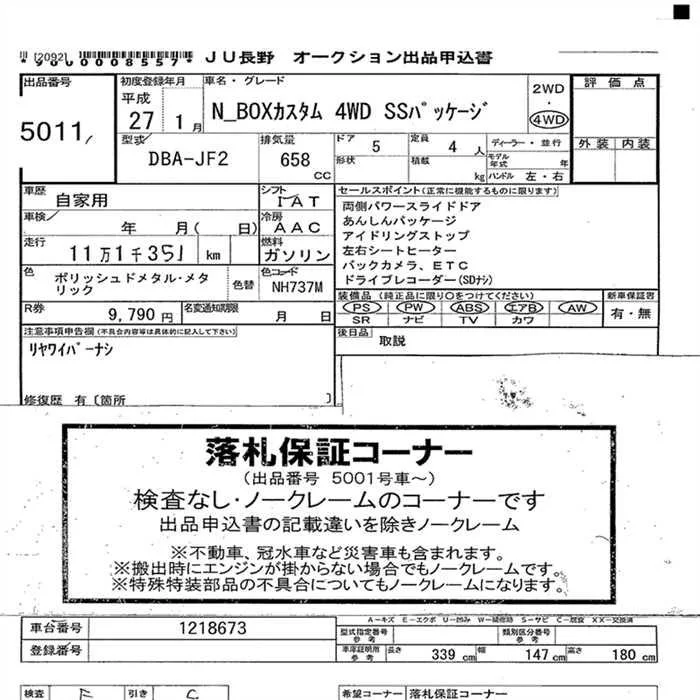 [2092]
*9000008557* ＪＵ長野　オークション出品申込書
出品番号
5011
初度登録年月
平成
27 1月
車名・グレード
N_BOXカスタム 4WD SSパッケージ
2WD
・
4WD
評価点
外装 内装
型式
DBA-JF2
排気量
658
cc
ドア 5
定員 4人
形状
積載 kg
ディーラー・並行
モデル年式 年
ハンドル 左・右
車歴
自家用
シフト
IAT
車検
年 月( 日)
冷房
AAC
走行
11万1千351 km
燃料
ガソリン
色
ポリッシュドメタル・メタリック
色替
色コード
NH737M
R券
9,790円
名変通知期限
月 日
セールスポイント(正常に機能するものに限ります)
両側パワースライドドア
あんしんパッケージ
アイドリングストップ
左右シートヒーター
バックカメラ、ETC
ドライブレコーダー(SDナシ)
装備品 (純正品に限り○をつけてください)
PS PW ABS エアB AW
SR ナビ TV カワ
新車保証書
有・無
後日品
取説
注意事項申告欄(不具合内容等は具体的に記入して下さい)
リヤワイパーナシ
修復歴 有〔箇所 〕
落札保証コーナー
(出品番号 5001号車～)
検査なし・ノークレームのコーナーです
出品申込書の記載違いを除きノークレーム
※不動車、冠水車など災害車も含まれます。
※搬出時にエンジンが掛からない場合でもノークレームです。
※特殊特装部品の不具合についてもノークレームになります。
A－キズ E－エクボ U－凹み W－補修跡 S－サビ C－腐食 XX－交換済
車台番号 1218673
登録番号
型式指定番号
参考
類別区分番号
参考
車庫証明用
参考
長さ 339cm 幅 147cm 高さ 180cm
検査
引き
希望コーナー 落札保証コーナー